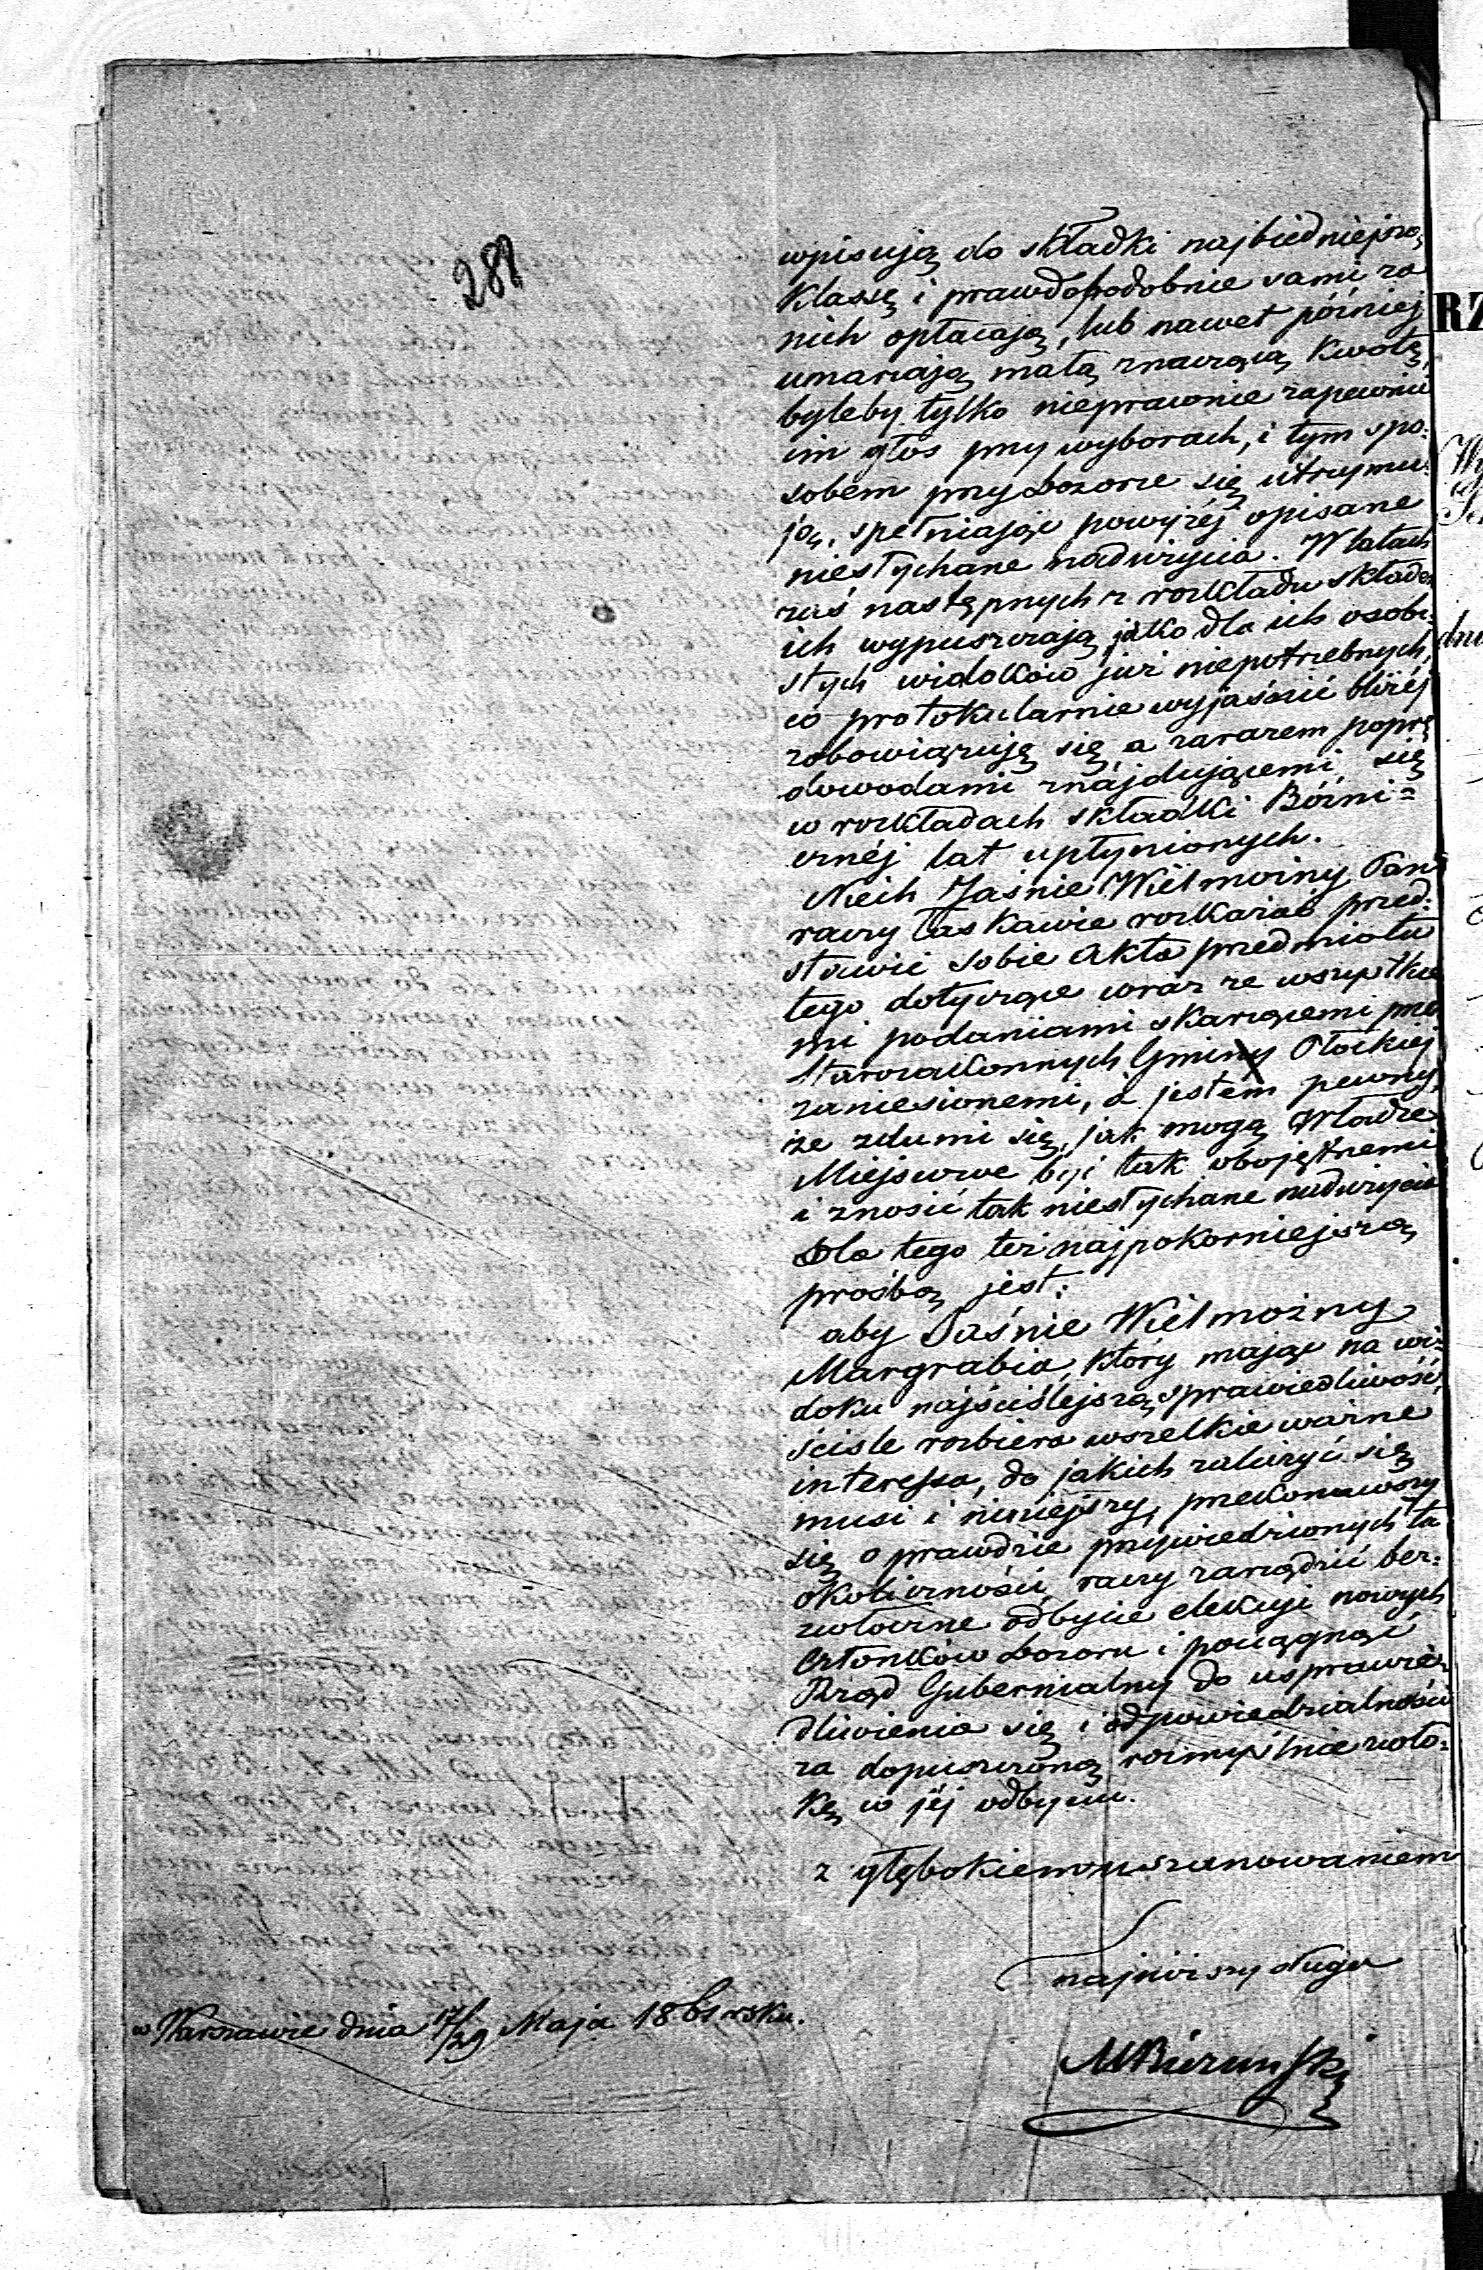 282
wpisują do składki najbiedniejszą
klassę i prawdopodobnie sami za
nich opłacają, lub nawet później
umarzają małą znaczącą kwotę,
byleby tylko nieprawnie zapewnić
im głos przy wyborach, i tym spo-
sobem przy dozorze się utrzymu-
ją, spełniając powyżéj opisane
niesłychane nadużycia. W latach
zaś następnych z rozkładu składek
ich wypuszczają jako dla ich osobi-
stych widoków już niepotrzebnych,
co protokularnie wyjaśnić bliżéj
zobowiązuję się, a zarazem poprę
dowodami znajdującemi się
w rozkładach składki Bóżni=
cznéj lat upłynionych.
Niech Jaśnie Wielmożny Pan
raczy łaskawie rozkazać przed-
stawić sobie Akta przedmiotu
tego dotyczące wraz ze wszystkie
mi podaniami skarżącemi przez
Starozakonnych Gminy Płockiej
zaniesionemi, a jestem pewny,
że zdumi się, jak mogą Władze
Miejscowe być tak obojętnemi
i znosić tak niesłychane nadużycia
Dla tego też najpokorniejszą
prośbą jest:
aby Jaśnie Wielmożny
Margrabia, który mając na wi-
doku najściślejszą sprawiedliwość,
ściśle rozbiera wszelkie ważne
interessa, do jakich zaliczyć się
musi i niniejszy, przekonawszy
się o prawdzie przywiedzionych tu
okoliczności, raczy zarządzić bez-
zwłoczne odbycie elekcyi nowych
Członków dozoru i pociągnąć
Rząd Gubernialny do usprawie-
dliwienia się i odpowiedzialności
za dopuszczoną rozmyślnie zwło-
kę w jéj odbyciu.
z głębokiem uszanowaniem
najniższy sługa
w Warszawie dnia 17/29 Maja 1861 roku.